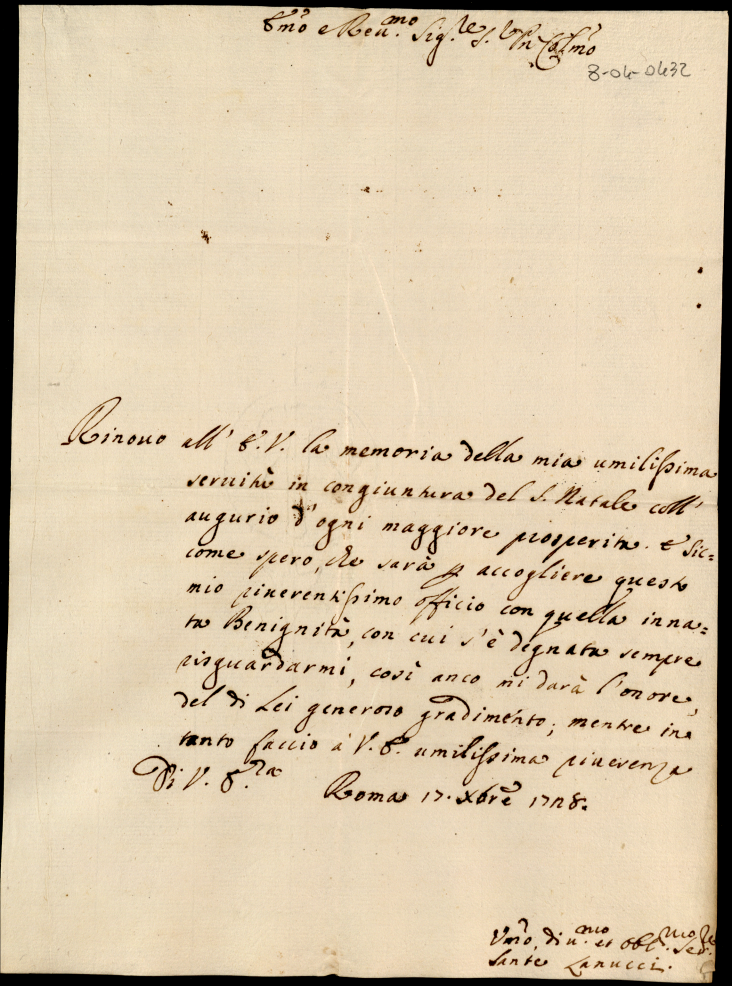 Emo e Reu.mo Sig.re S.r Pn Colmo
8-04-0432
Rinouo all' E. V. la memoria della mia umilissima
seruitù in congiuntura del S. Natale coll'
augurio d'ogni maggiore prosperità. E sic=
come spero, che sarà p accogliere questo
mio riuerentissimo officio con quella inna=
ta Benignità, con cui s'è degnata sempre
risguardarmi, così anco mi darà l'onore,
del di Lei generoso gradimento; mentre in
tanto faccio à V. E. umilissima riuerenza
Di V. E.za Roma 17. Xbre 1728.
Vmo, diu.mo et obl.mo Ser.re
Sante Lanucci.